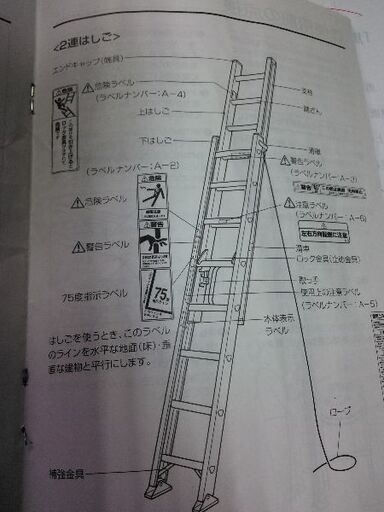 <2連はしご>
エンドキャップ(端具)
危険ラベル
(ラベルナンバー:A-4)
支柱
踏さん
上はしご
下はしご
滑車
警告ラベル
(ラベルナンバー:A-3)
(ラベルナンバー:A-2)
危険
危険ラベル
警告
注意ラベル
(ラベルナンバー:A-6)
注意
左右方向転倒に注意
警告
警告ラベル
滑車
ロック金具(止め金具)
取っ手
使用上の注意ラベル
(ラベルナンバー:A-5)
75度指示ラベル
75
本体表示
ラベル
はしごを使うとき、このラベル
のラインを水平な地面(床)・垂
直な建物と平行にします。
ロープ
補強金具